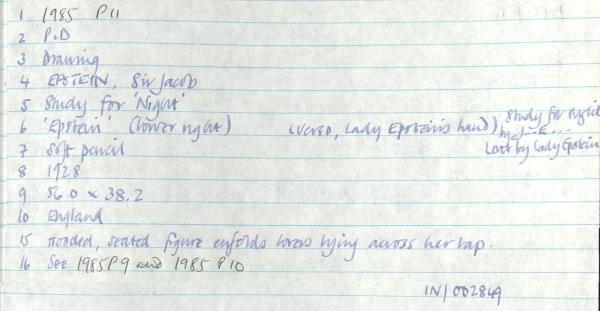 1 1985 P11
2 P&D
3 Drawing
4 EPSTEIN, Sir Jacob
5 Study for 'Night'
6 'Epstein' (lower right) (verso, Lady Epstein's hand) Study for night
by J. E...
Lent by Lady Epstein
7 Soft pencil
8 1928
9 56.0 x 38.2
10 England
15 Hooded, seated figure enfolds lovers lying across her lap.
16 See 1985P9 and 1985 P10
IN/002849